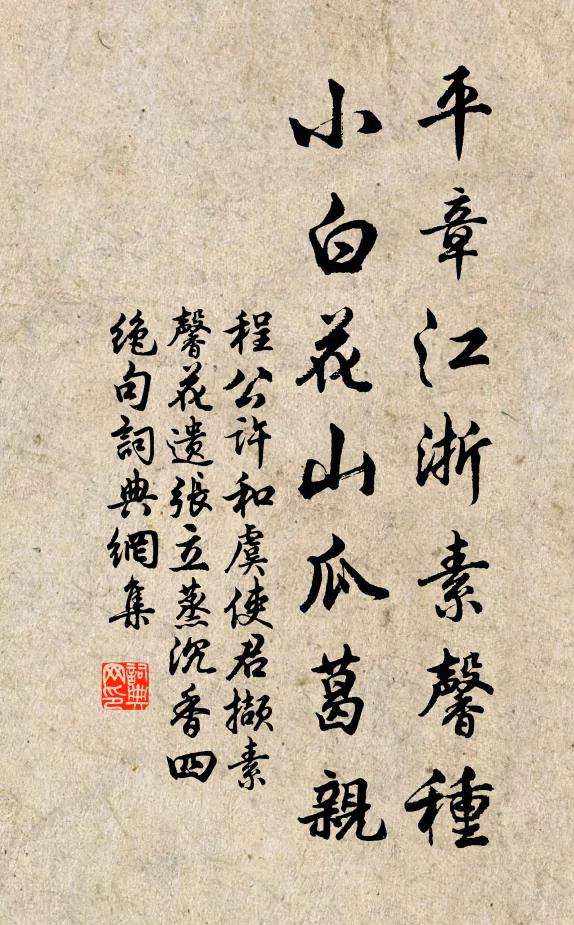 平章江浙素馨種
小白花山瓜葛親
程公許和虞使君擷素
馨花遗張立蒸沉香四
絶句詞典網集
詞典网印